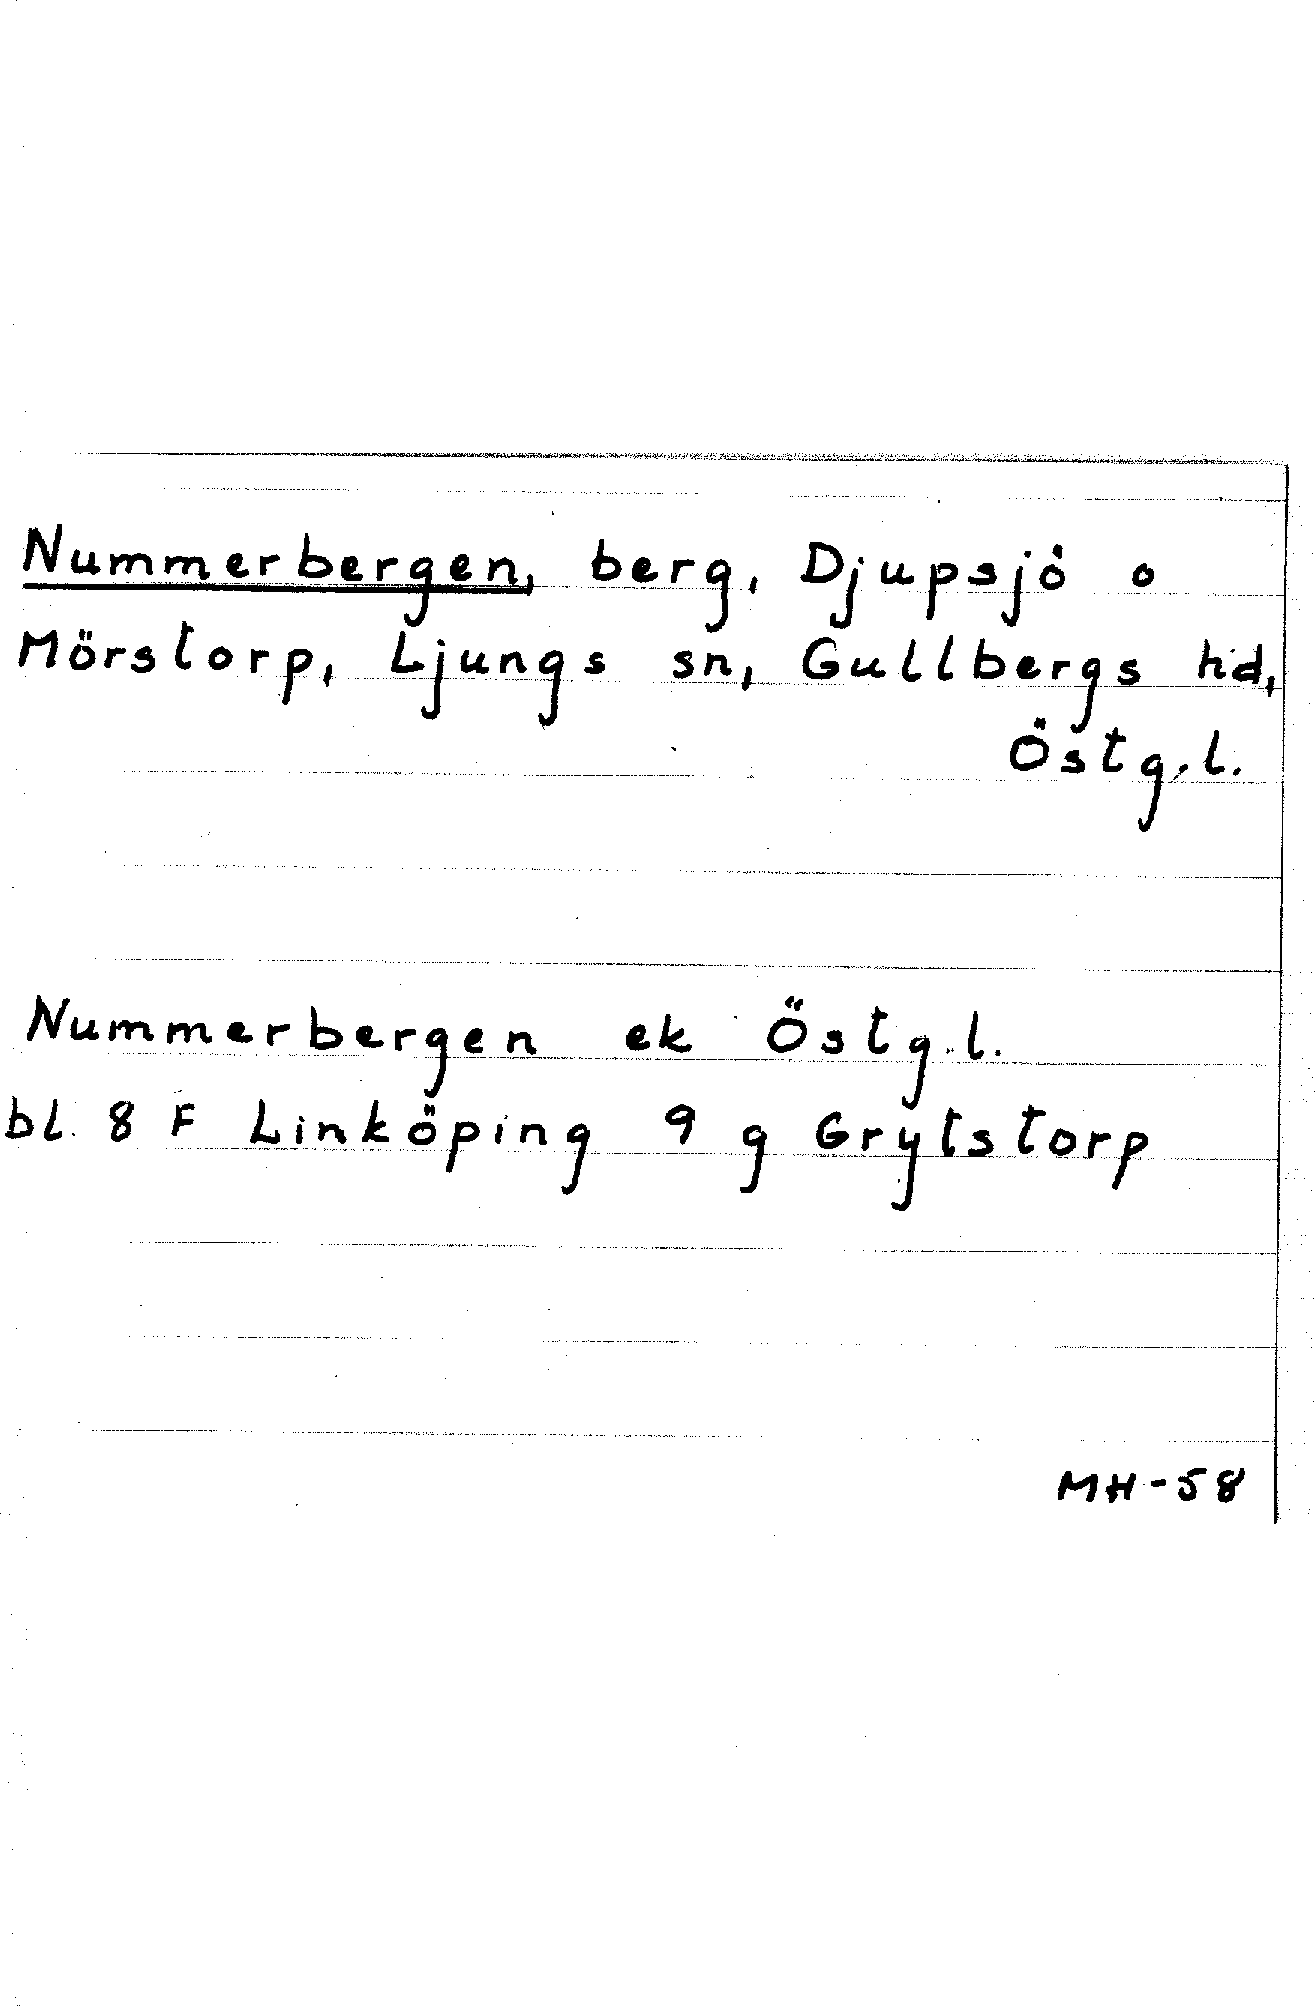 Nummerbergen, berg, Djupsjö o
Mörstorp, Ljungs sn, Gullbergs hd,
Östg.l.
Nummerbergen ek Östg.l.
bl. 8 F Linköping 9 g Grytstorp
MH-58